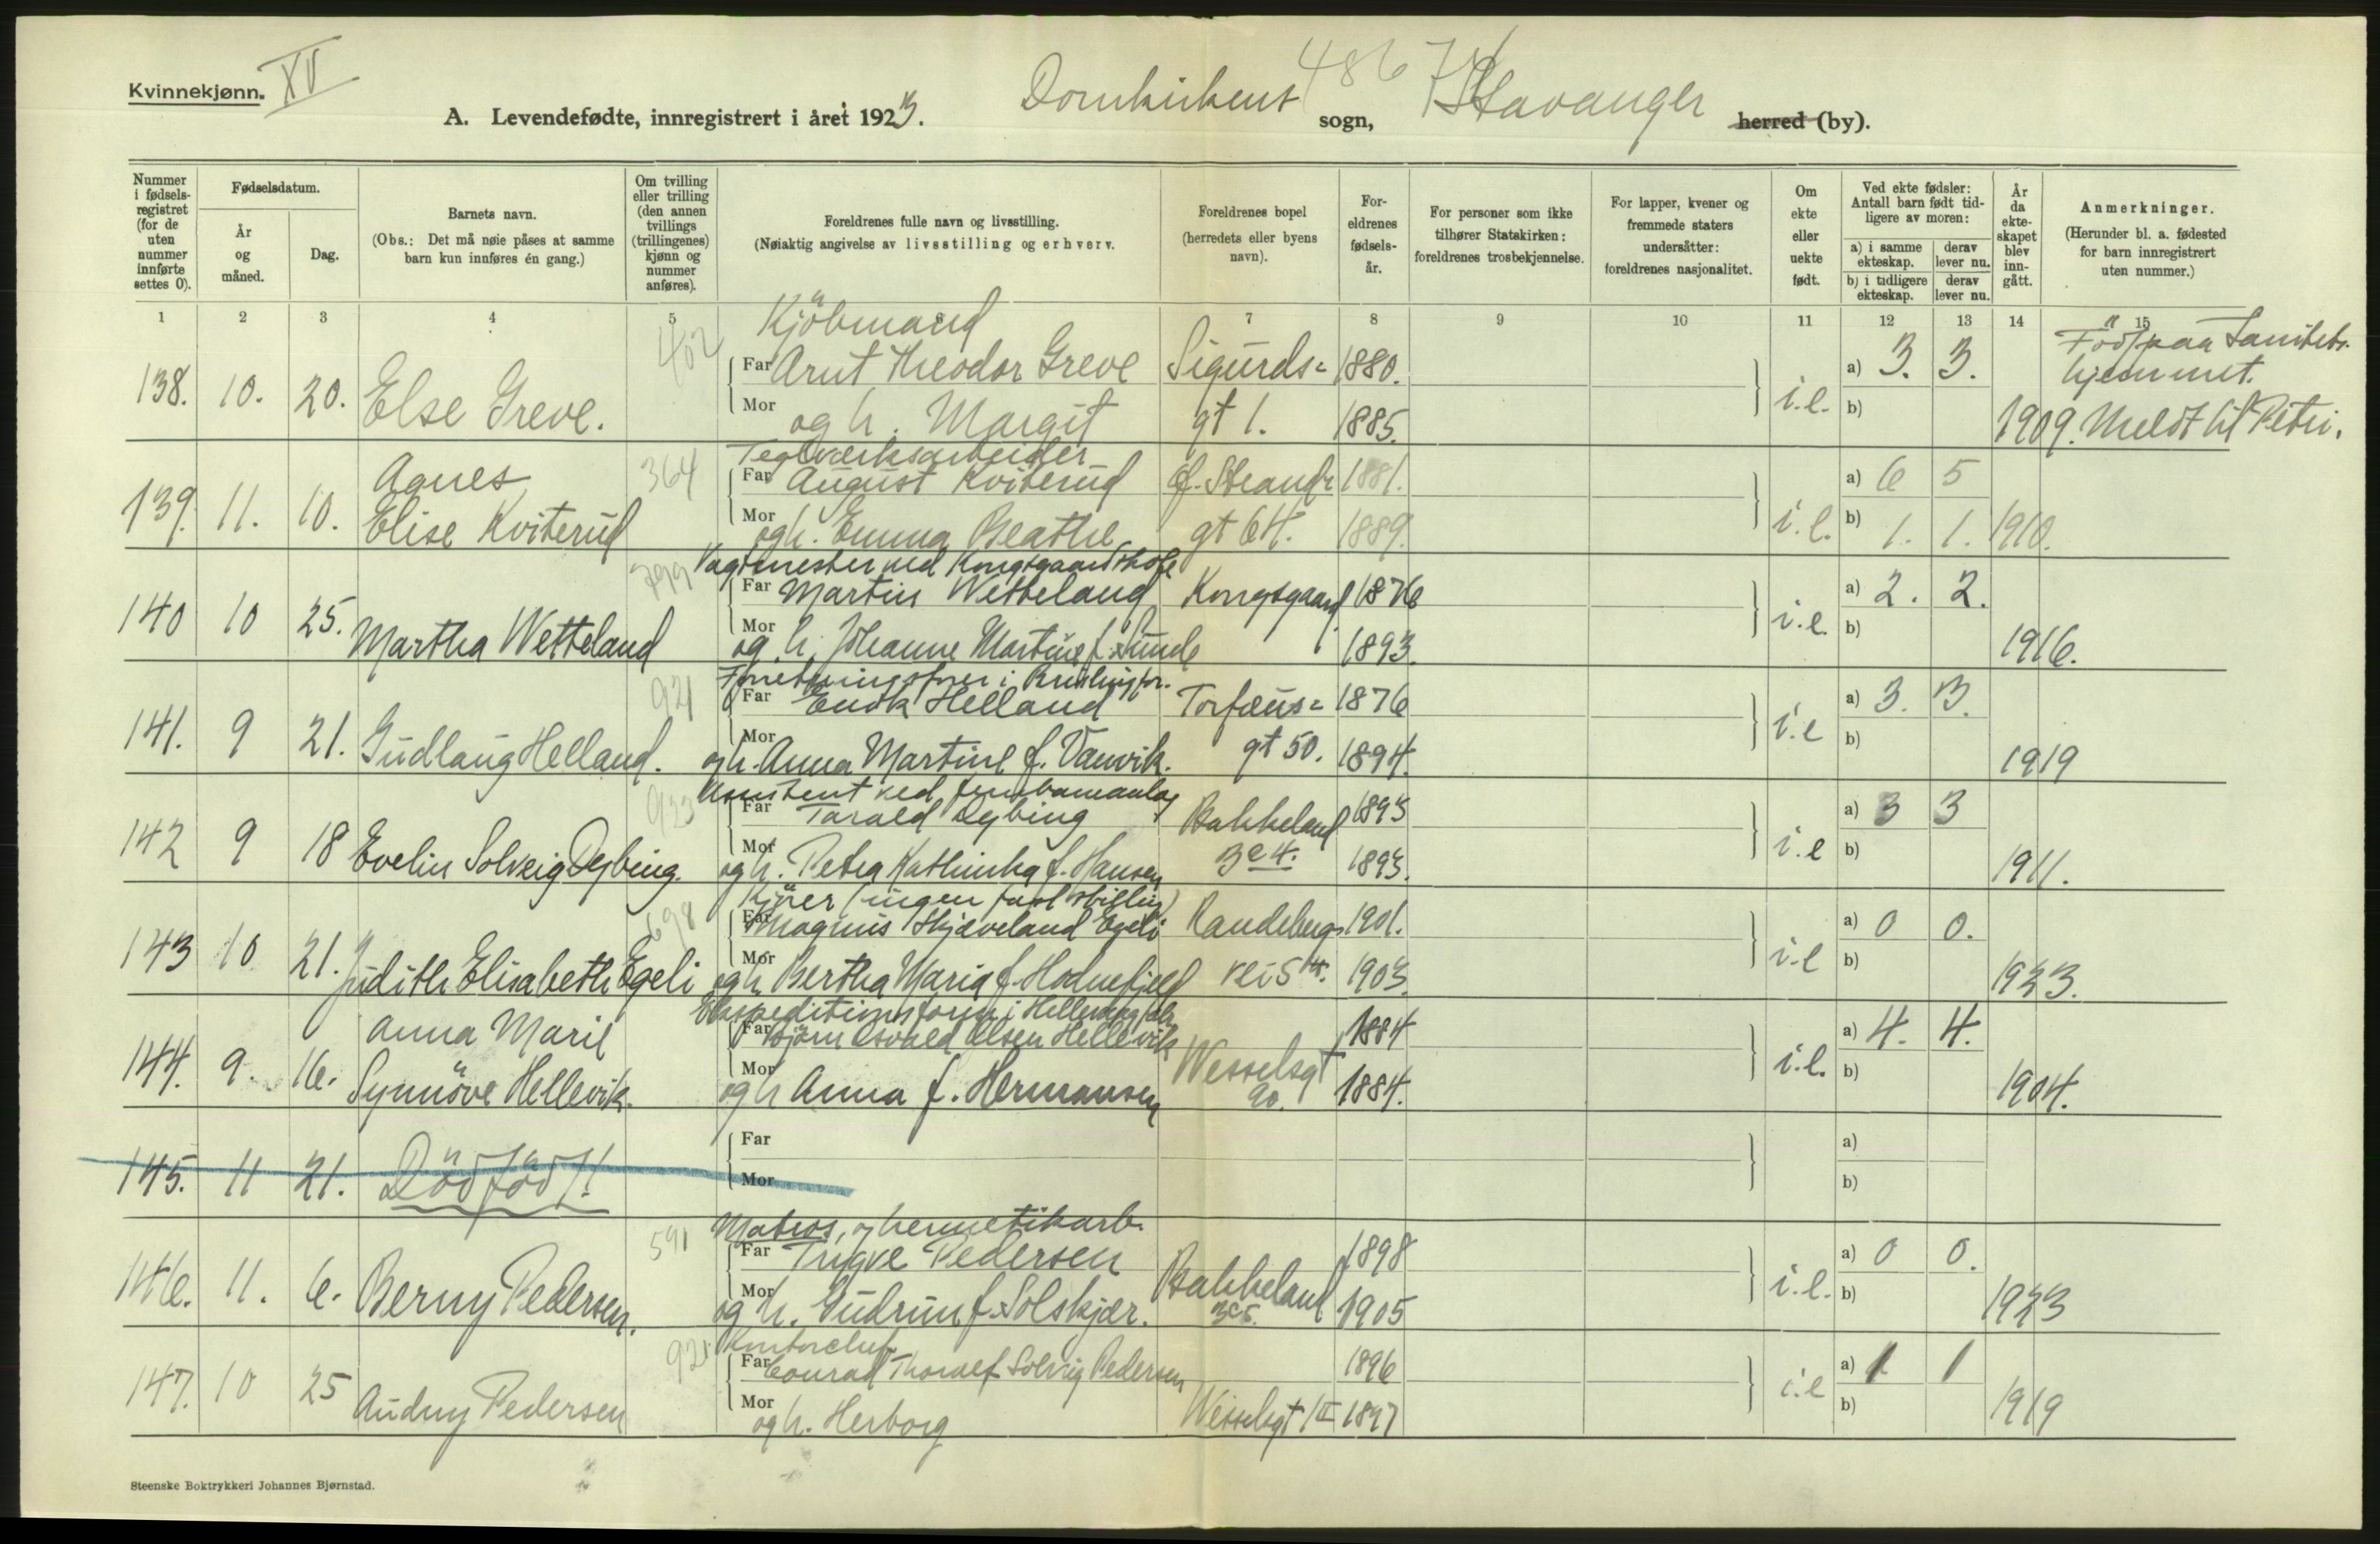 Kvinnekjønn. XV
A. Levendefødte, innregistrert i året 1923. Domkirkens sogn, Stavanger herred (by).
4867
Nummer i fødselsregistret (for de uten nummer innførte settes 0).
Fødselsdatum.
År og måned.
Dag.
Barnets navn.
(Obs.: Det må nøie påses at samme barn kun innføres én gang.)
Om tvilling eller trilling (den annen tvillings (trillingenes) kjønn og nummer anføres).
Foreldrenes fulle navn og livsstilling.
(Nøiaktig angivelse av livsstilling og erhverv.
Foreldrenes bopel (herredets eller byens navn).
Foreldrenes fødselsår.
For personer som ikke tilhører Statskirken: foreldrenes trosbekjennelse.
For lapper, kvener og fremmede staters undersåtter: foreldrenes nasjonalitet.
Om ekte eller uekte født.
Ved ekte fødsler: Antall barn født tidligere av moren:
a) i samme ekteskap. derav lever nu.
b) i tidligere ekteskap. derav lever nu.
År da ekteskapet blev inngått.
Anmerkninger.
(Herunder bl. a. fødested for barn innregistrert uten nummer.)
1 2 3 4 5 6 7 8 9 10 11 12 13 14 15
Kjöbmand
138. 10. 20. Else Greve. 402 Far Arnt Theodor Greve Sigurds= 1880. i.e. a) 3. 3. Född paa Sanitetshjemmet.
Mor og h. Margit gt 1. 1885. b) 1909. Meldt til Petri.
Teglverksarbeider
139. 11. 10. Agnes Elise Kviterud 364 Far August Kviterud 1881. i.e. a) 6 5
Mor og h. Emma Beathe gt 64. 1889. b) 1. 1. 1910.
Vagtmester ved Kongsgaard skole
140 10 25. Martha Wetteland 799 Far Martin Wetteland Kongsgaard 1876 i.e. a) 2. 2.
Mor og h. Johanne Martine f. Sunde 1893. b) 1916.
141. 9 21. Gudlaug Helland. 921 Far Enok Helland Torfæus= 1876 i.e a) 3. 3.
Mor og h. Anna Martine f. Vanvik. gt 50. 1894. b) 1919
Assistent ved jernbaneanlæg
142 9 18 Evelin Solveig Dybing. 923 Far Tarald Dybing Bakkeland 1893 i.e a) 3 3
Mor og h. Petra Kathinka f. Hansen 3e 4. 1893. b) 1911.
Kjörer (ingen fast stilling)
143 10 21. Judith Elisabeth Egeli 698 Far Magnus Skjæveland Egeli Randeberg= 1901. i.e a) 0 0.
Mor og h Bertha Maria f. Hodnefjeld vei 5 1903. b) 1923.
144. 9. 16. Anna Marie Synnöve Hellevik. Far Björn Osvald Olsen Hellevik Wesselsgt 1884 i.e. a) 4. 4.
Mor og h Anna f. Hermansen 90. 1884. b) 1904.
145. 11 21. Dödfödt! Far a)
Mor b)
Matros, og hermetikarb.
146. 11. 6. Berny Pedersen. 591 Far Trygve Pedersen Bakkeland 1898 i.e. a) 0 0.
Mor og h. Gudrun f. Solskjær. 1905 b) 1923
Kontorchef
147. 10 25 Audny Pedersen 921 Far Conrad Thoralf Solvig Pedersen 1896 i.e a) 1 1
Mor og h. Herborg Wesselsgt 1 II 1897 b) 1919
Steenske Boktrykkeri Johannes Bjørnstad.